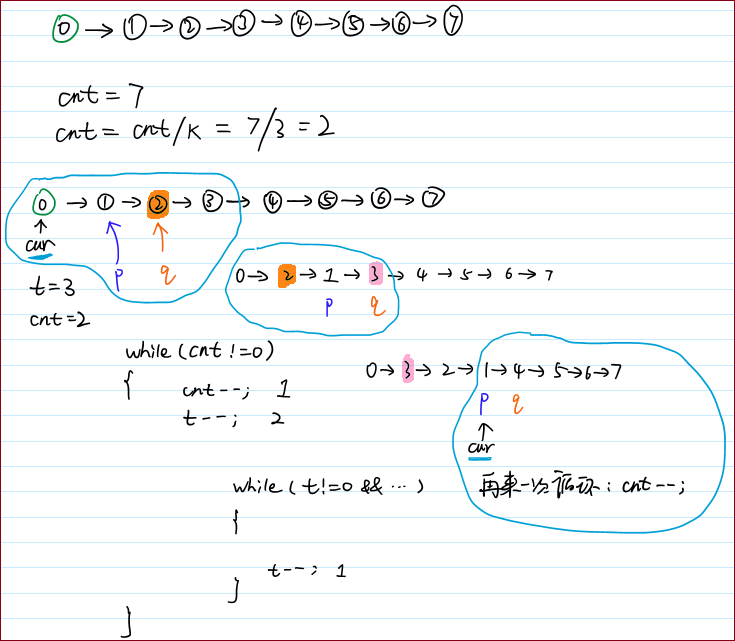 ⓪→①→②→③→④→⑤→⑥→⑦
cnt = 7
cnt = cnt/K = 7/3 = 2
⓪→①→②→③→④→⑤→⑥→⑦
↑
cur
p q
t=3
cnt=2
0→2→1→3→4→5→6→7
p q
while(cnt!=0)
{ cnt--; 1
t--; 2
0→3→2→1→4→5→6→7
p q
↑
cur
再来一次循环: cnt--;
while(t!=0 && ···)
{
t--; 1
}
}